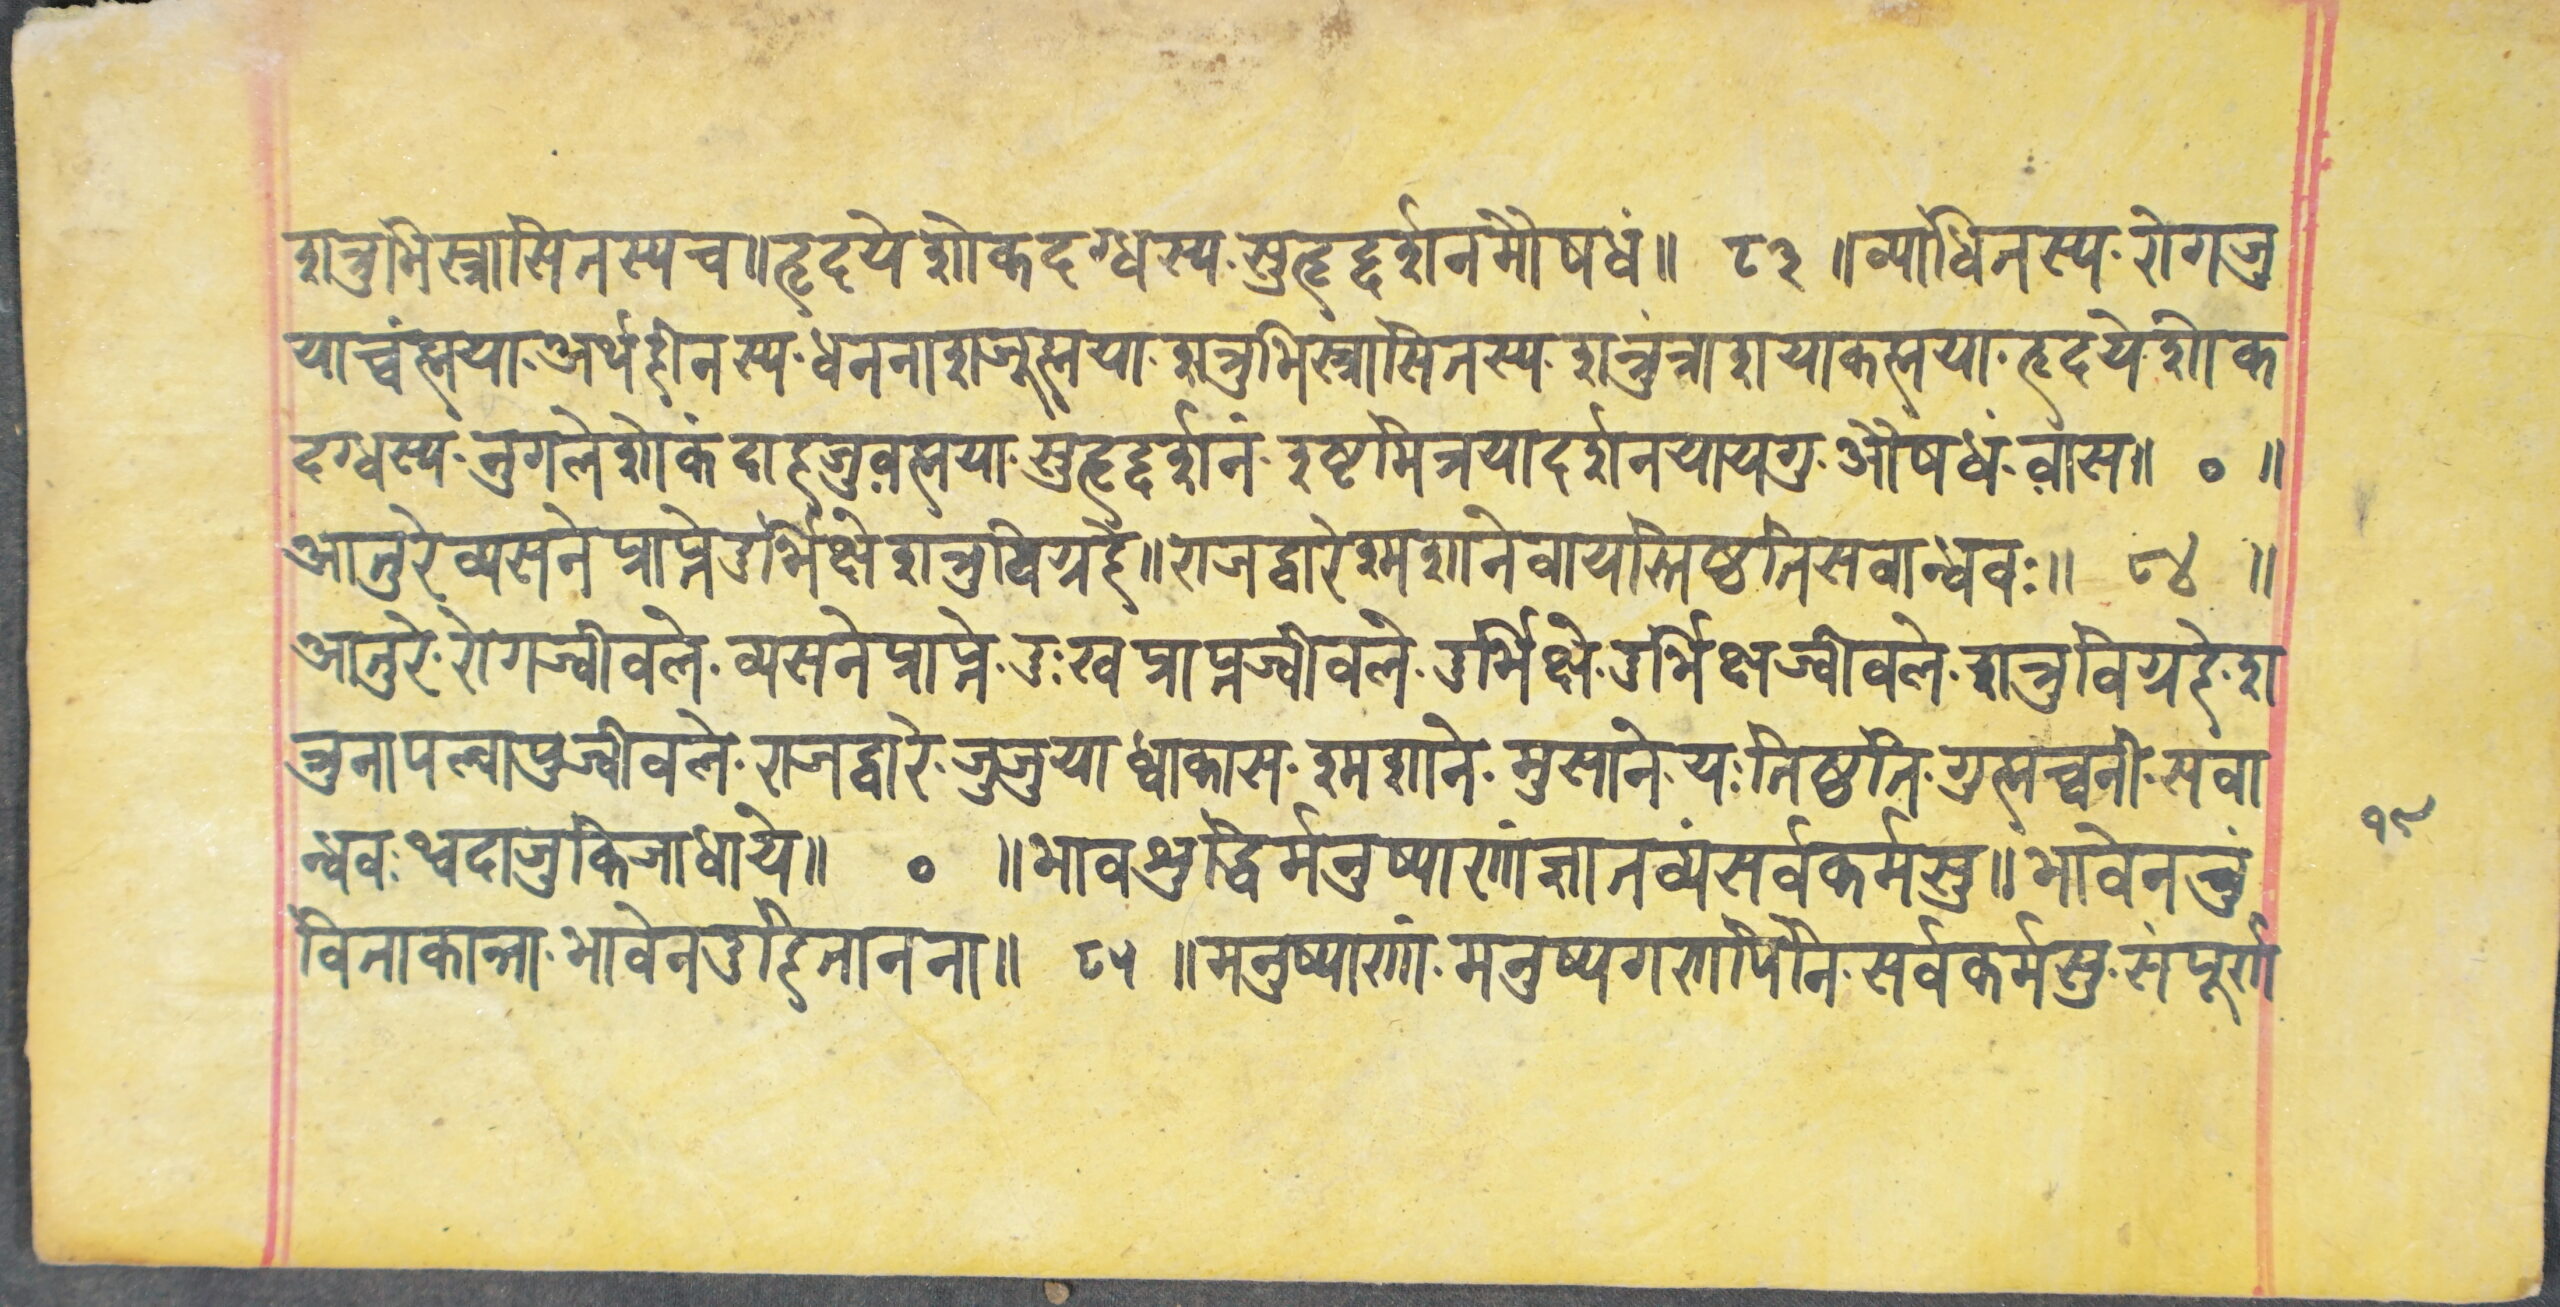 शत्रुभिस्त्रासितस्यच॥हृदयेशोकदग्धस्य·सुहृद्दर्शनमौषधं॥ ८३ ॥व्याधितस्य·रोगजु
याच्वंह्मया·अर्थहीनस्य·धननाशजूह्मया·शत्रुभिस्त्रासितस्य·शत्रुंत्राशयाकह्मया·हृदये·शोक
दग्धस्य·नुगलेशोकंदाहजुव़ह्मया·सुहृद्दर्शनं·इष्टमित्रयादर्शनयायगु·औषधं·व़ास॥ ० ॥
आतुरेव्यसनेप्राप्तेदुर्भिक्षेशत्रुविग्रहे॥राजद्वारेश्मशानेवायस्तिष्ठतिसवान्धवः॥ ८४ ॥
आतुरे·रोगज्वीवले·व्यसनेप्राप्ते·दुःखप्राप्तज्वीवले·दुर्भिक्षे·दुर्भिक्षज्वीवले·शत्रुविग्रहे·श
त्रुनापल्वापुज्वीवले·राजद्वारे·जुजुयाध्वाकास·श्मशाने·मुसाने·यःतिष्ठति·गुह्मच्वनी·सवा
न्धवः·थ्वदाजुकिजाधाये॥ ० ॥भावशुद्धिर्मनुष्याणांज्ञातव्यंसर्वकर्मसु॥भावेनचुं
विताकान्ता·भावेनदुहितानना॥ ८५ ॥मनुष्याणां·मनुष्यगणपिनि·सर्वकर्मसु·संपूर्ण
१९